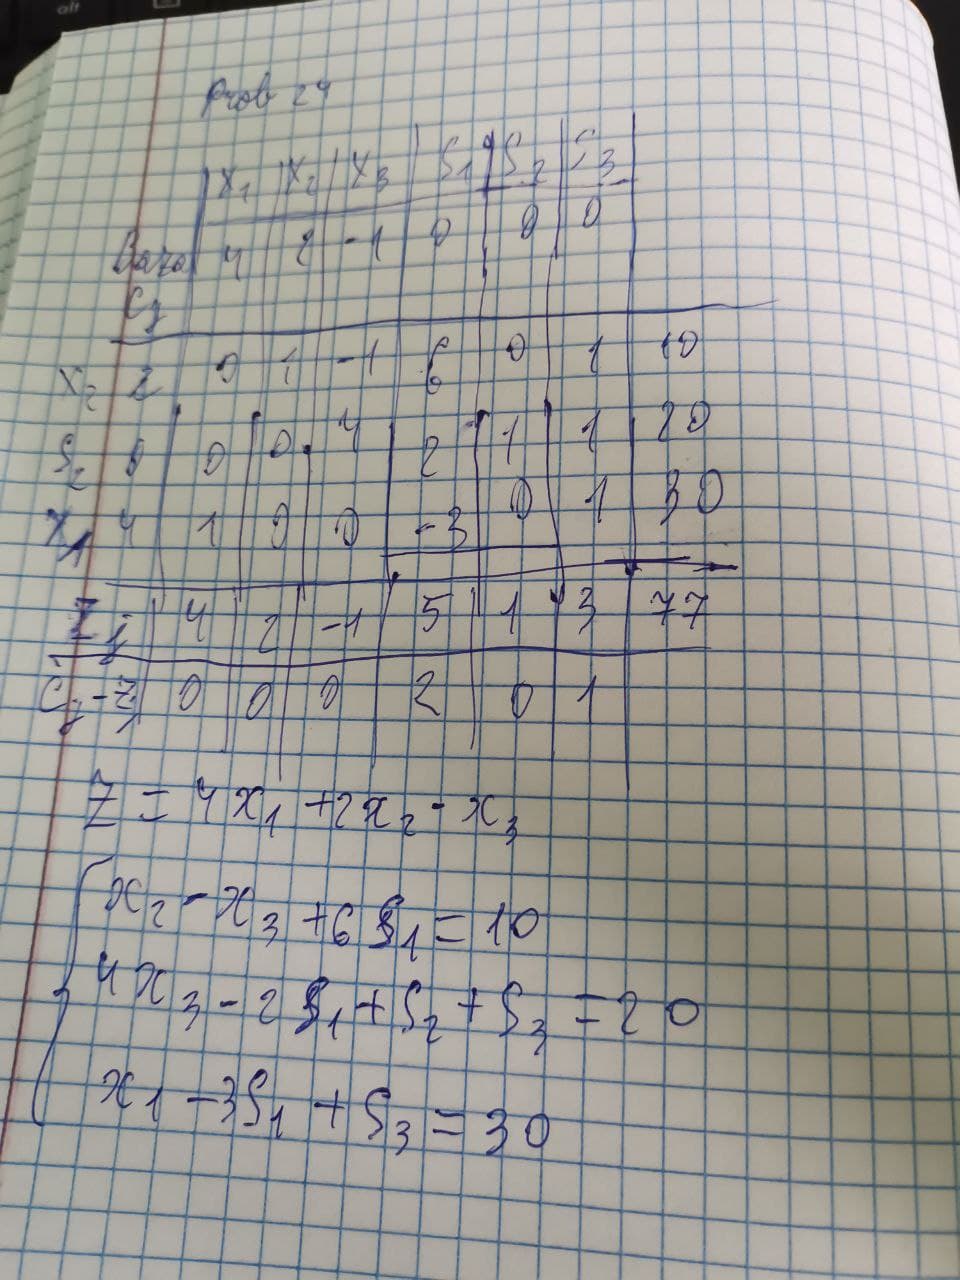 Prob 24
x1 x2 x3 S1 S2 S3
Baza 4 2 -1 0 0 0
Cj
x2 2 0 1 -1 6 0 1 10
S2 0 0 0 4 2 1 1 20
x1 4 1 0 0 -3 0 1 30
Zj 4 2 -1 5 1 3 77
Cj-Zj 0 0 0 2 0 1
Z = 4x1 + 2x2 - x3
x2 - x3 + 6S1 = 10
4x3 - 2S1 + S2 + S3 = 20
x1 - 3S1 + S3 = 30